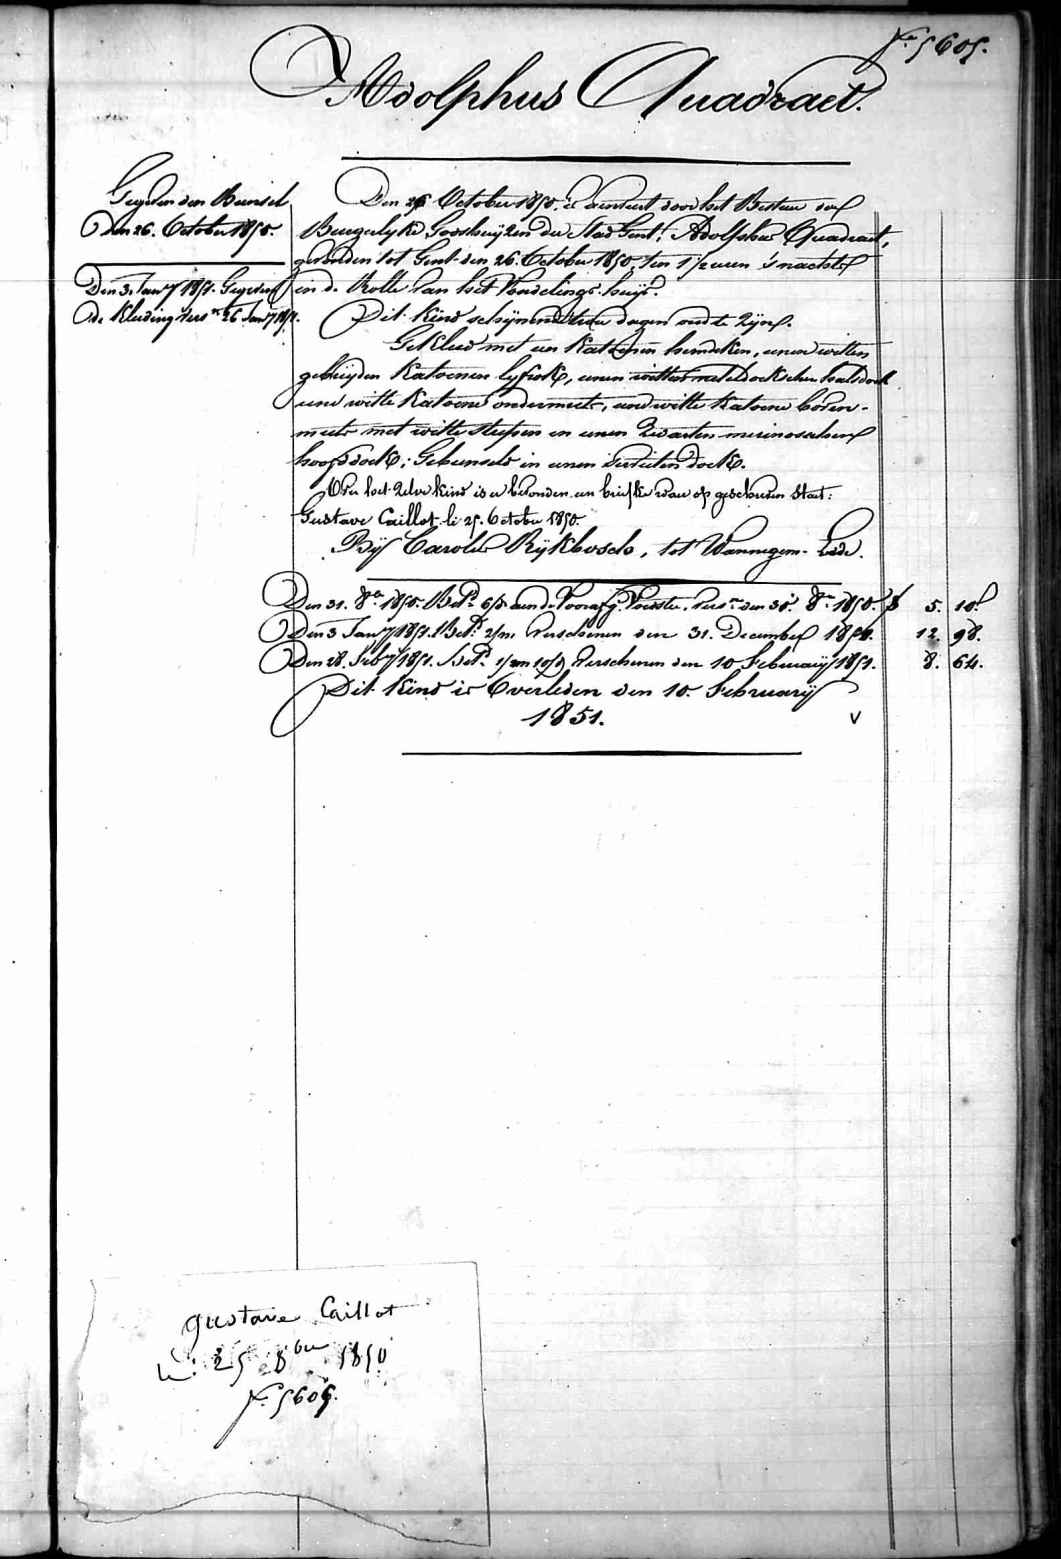 N.º 5605.
Adolphus Quadraet.
Gegeven den Bunsel
Den 26. October 1850.
Den 3. Jan.ÿ 1851. Gegeven
de Kleeding vers.n 26 Jan.ÿ 1851.
Den 26 October 1850. is door het Bestuur der
Burgerlyke Godshuyzen der Stad Gent, Adolphus Quadraet,
gevonden tot Gent den 26. October 1850, ten 1 1/2 uren 's nachts
in de Rolle van het Vondelings-huys.
Dit Kind schynend dagen oud te Zyn.
Gekleed met een Katoenen hemdeken, eenen witten
gebreyden Katoenen lyfrok, eenen witten neteldoekschen halsdoek
eene witte Katoene ondermuts, eene witte katoene boven-
muts met witte strepen en eenen Zwarten merinoschen
hoofddoek; Gebunseld in eenen doek.
Over het Zelve kind is er bevonden een briefke waer op geschreven staet:
Gustave Caillot li 25. Octobr 1850.
By Carolus Rykbosch, tot Wannegem-Lede.
Den 31. 8.er 1850. Bet.d 6/d aen de Voorafg. Voedster, vers.n den 31. 8.er 1850. f 5. 10.
Den 3 Jan.ÿ 1851. Bet.d 2/m. Verschenen den 31. December 1850. 12. 98.
Den 28. Feb.ÿ 1851. Bet.d 1/m 10/d Verschenen den 10 February 1851. 8. 64.
Dit Kind is Overleden den 10. February
1851. v
gustave Caillot
li 25 8bre 1850
N.º 5605.